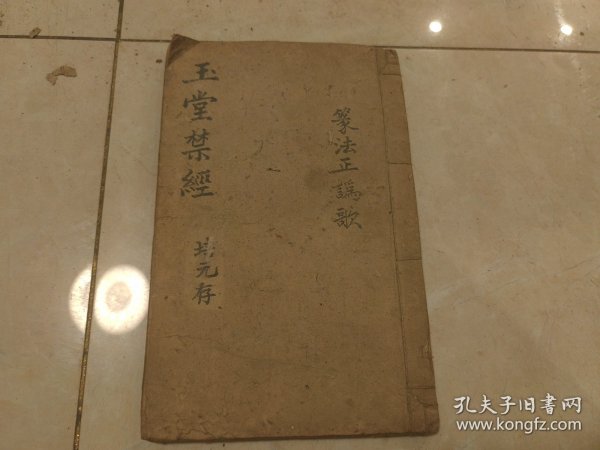 篆法正譌歌
玉堂禁經
培元存
孔夫子旧書网
www.kongfz.com